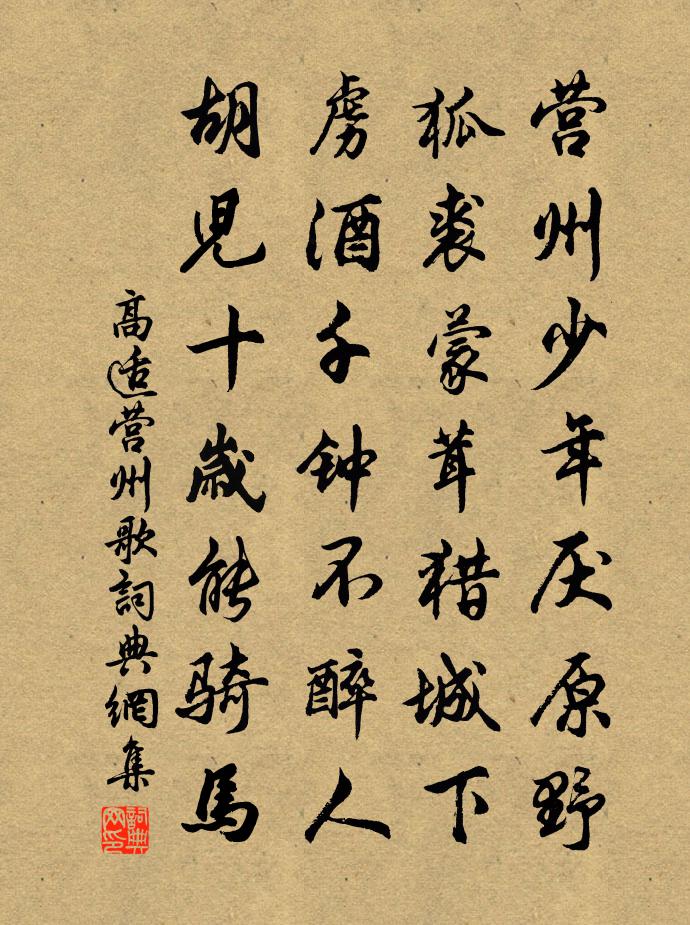 营州少年厌原野
狐裘蒙茸猎城下
虏酒千钟不醉人
胡児十歳能骑馬
高适营州歌詞典網集
詞典网印